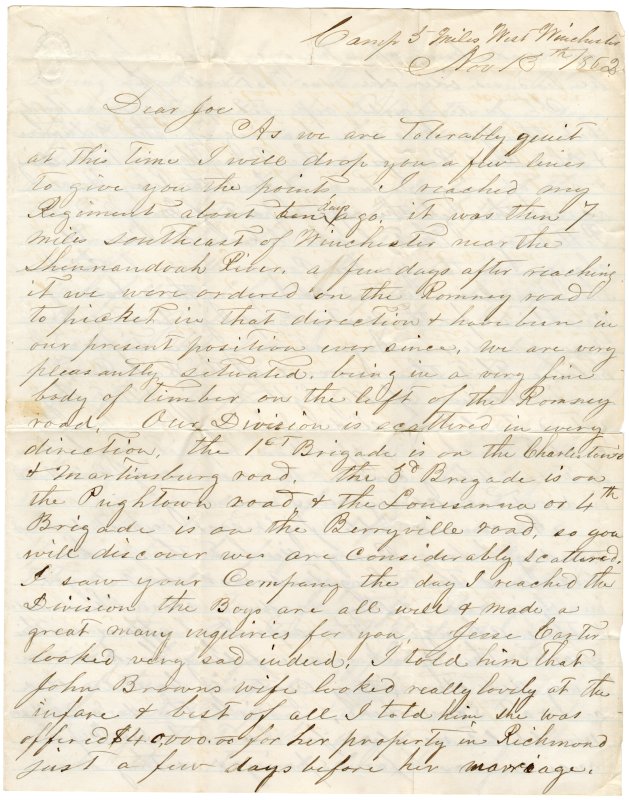 Camp 5 Miles West Winchester
Nov 13th 1862
Dear Joe
As we are tolerably quiet
at this time I will drop you a few lines
to give you the points. I reached my
Regiment about ten days ago, it was then 7
miles southeast of Winchester near the
Shennandoah River, a few days after reaching
it we were ordered on the Romney road
to picket in that direction & have been in
our present position ever since, we are very
pleasantly situated, being in a very fine
body of timber on the left of the Romney
road. Our Division is scattered in every
direction, the 1st Brigade is on the Charlestown
& Martinsburg road, the 3d Brigade is on
the Pughtown road, & the Louisanna or 4th
Brigade is on the Berryville road, so you
will discover we are considerably scattered.
I saw your Company the day I reached the
Division the Boys are all well & made a
great many inquiries for you, Jesse Carter
looked very sad indeed, I told him that
John Browns wife looked really lovely at the
infare & best of all I told him she was
offered $40,000.00 for her property in Richmond
just a few days before her marriage.